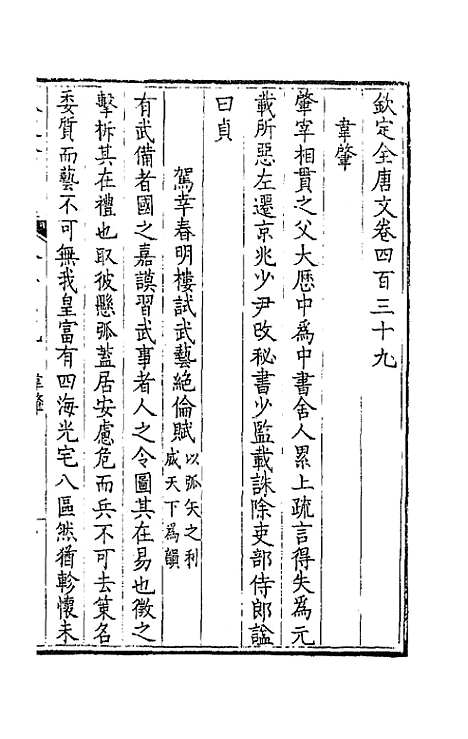 欽定全唐文卷四百三十九
韋肇
肇宰相貫之父大厯中爲中書舍人累上疏言得失爲元
載所惡左遷京兆少尹改秘書少監載誅除吏部侍郎諡
曰貞
駕幸春明樓試武藝絕倫賦以弧矢之利威天下爲韻
有武備者國之嘉謨習武事者人之令圖其在易也徵之
擊柝其在禮也取彼懸弧蓋居安慮危而兵不可去策名
委質而藝不可無我皇富有四海光宅八區然猶軫懷未
韋肇